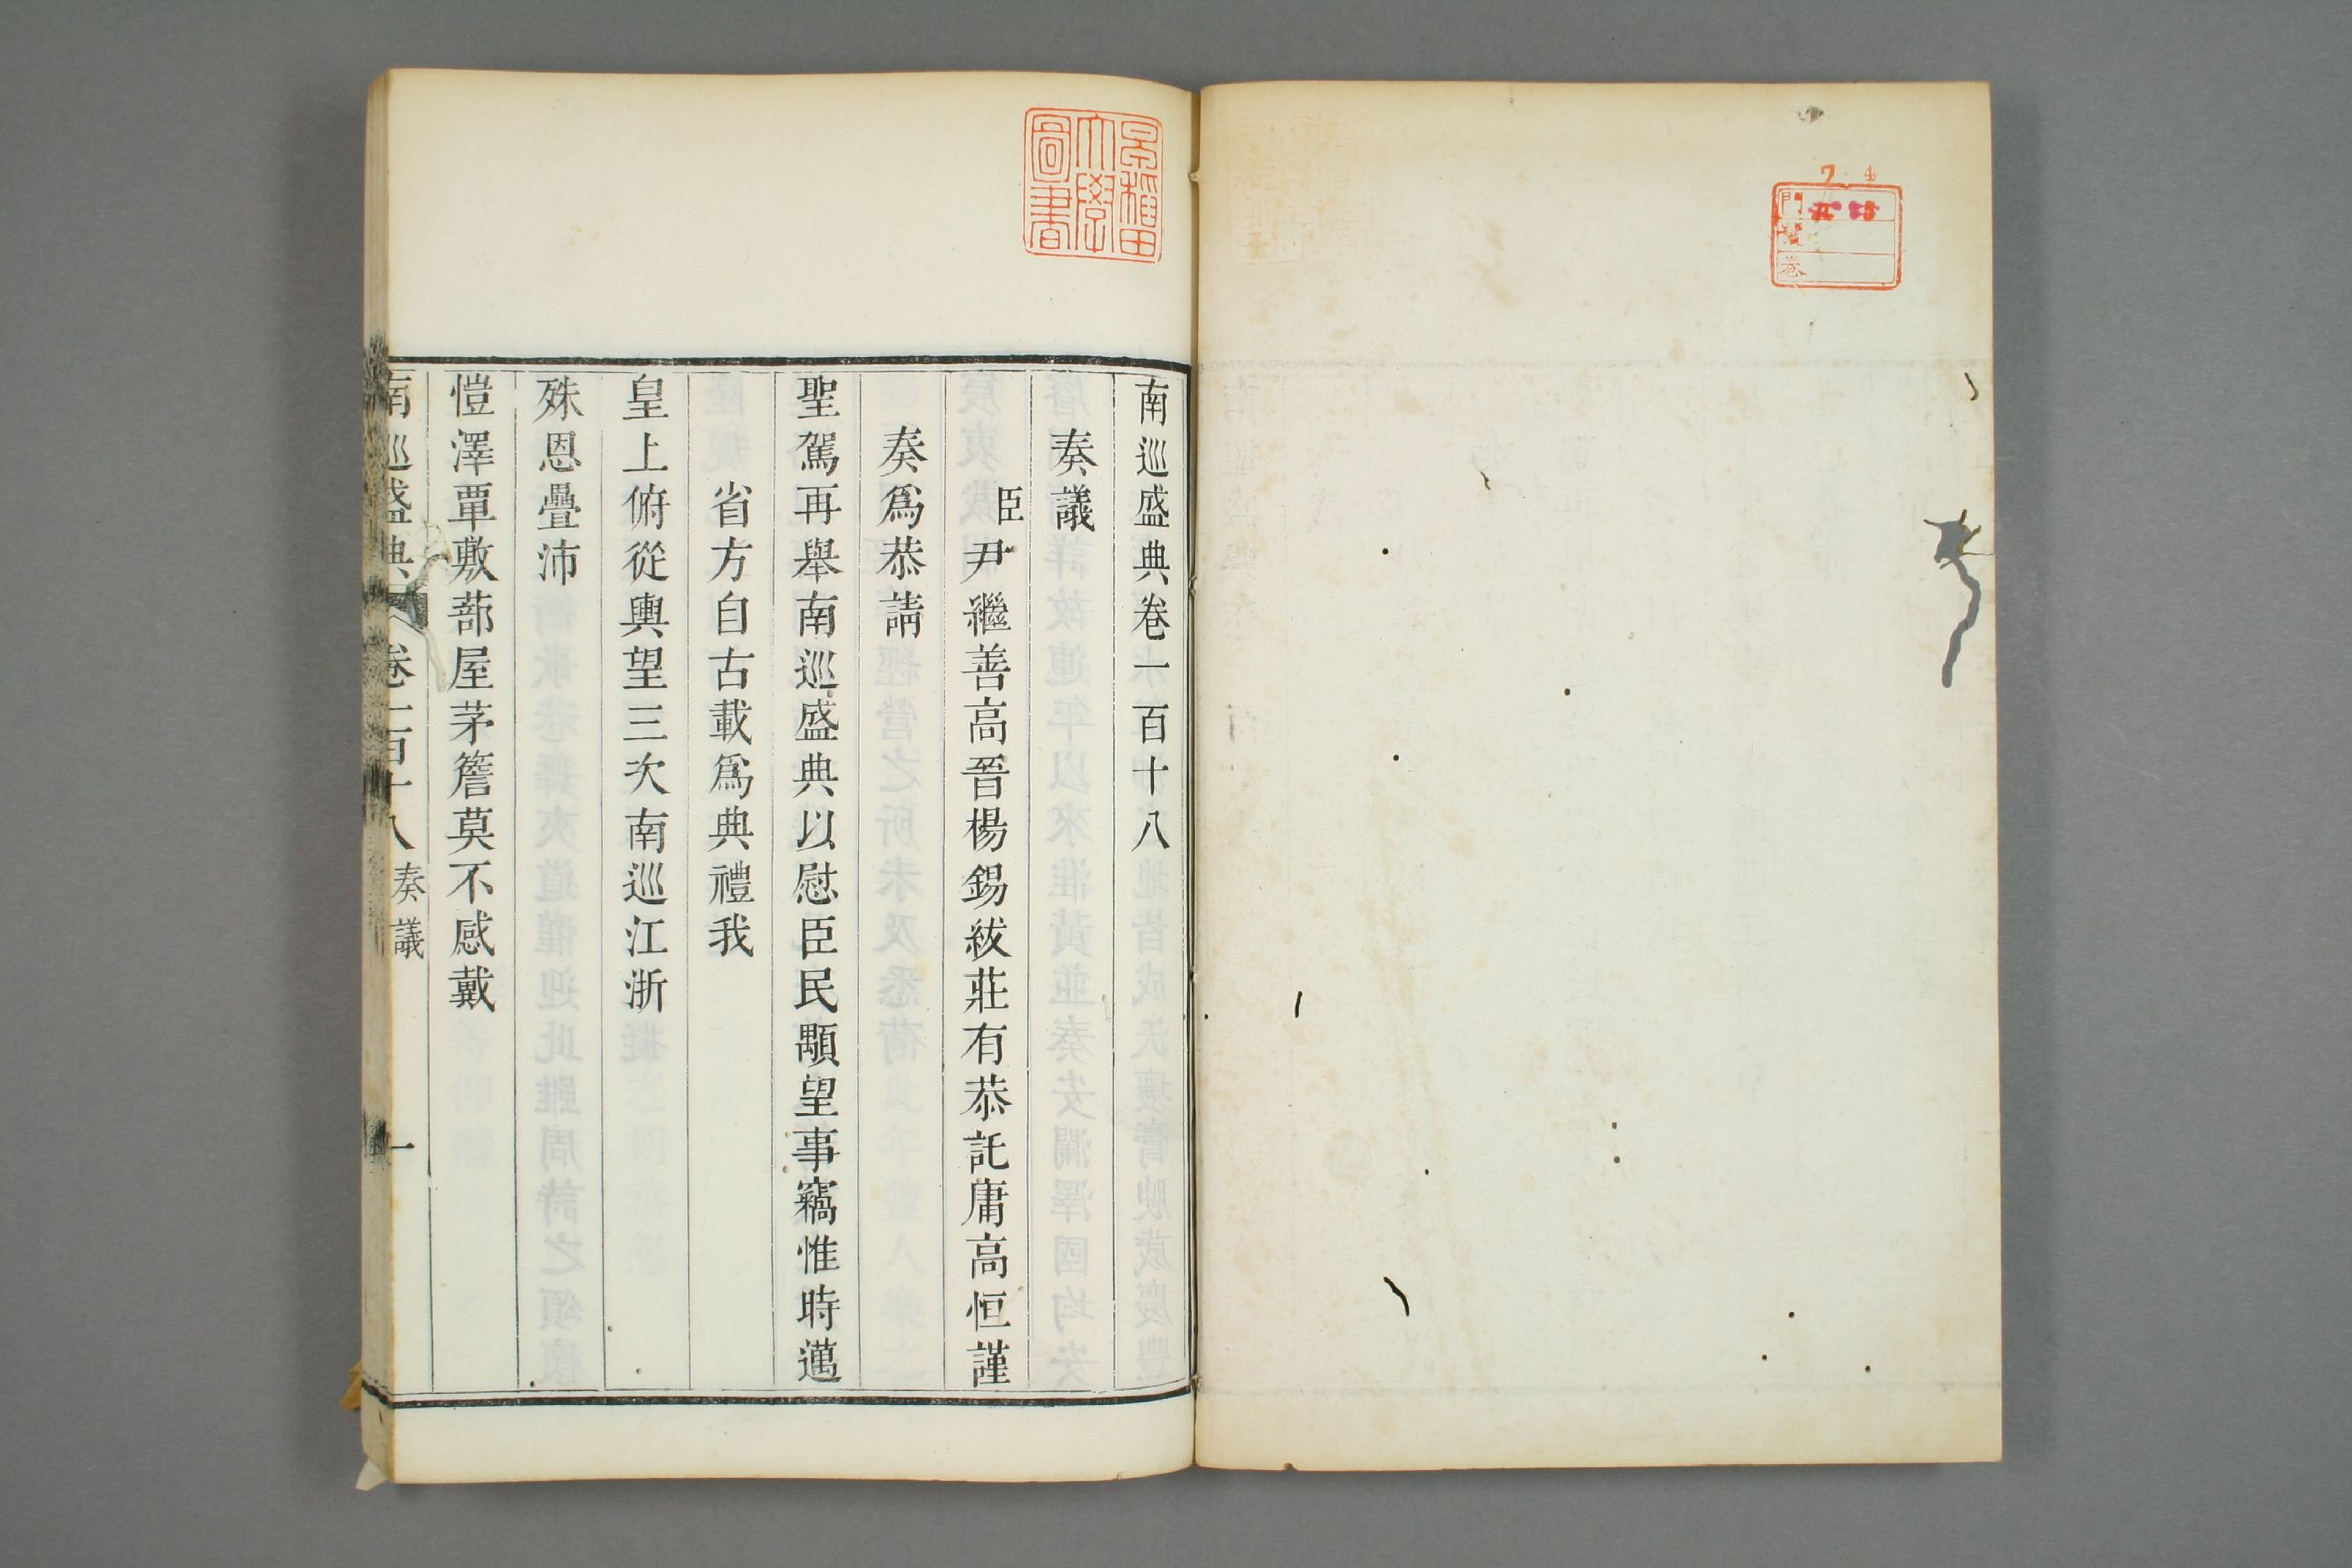 7 4
門
號
卷
早稻田
大學
圖書
南巡盛典卷一百十八
奏議
臣尹繼善高晉楊錫紱莊有恭託庸高恒謹
奏爲恭請
聖駕再舉南巡盛典以慰臣民顒望事竊惟時邁
省方自古載爲典禮我
皇上俯從輿望三次南巡江浙
殊恩疊沛
愷澤覃敷蔀屋茅簷莫不感戴
南巡盛典 卷一百十八 奏議 一